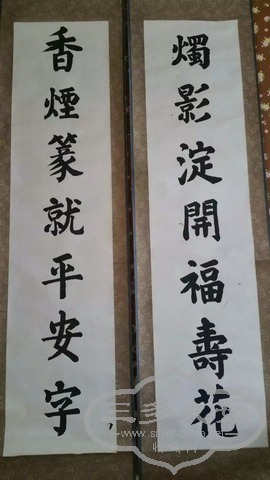 燭影淀開福壽花
香煙篆就平安字